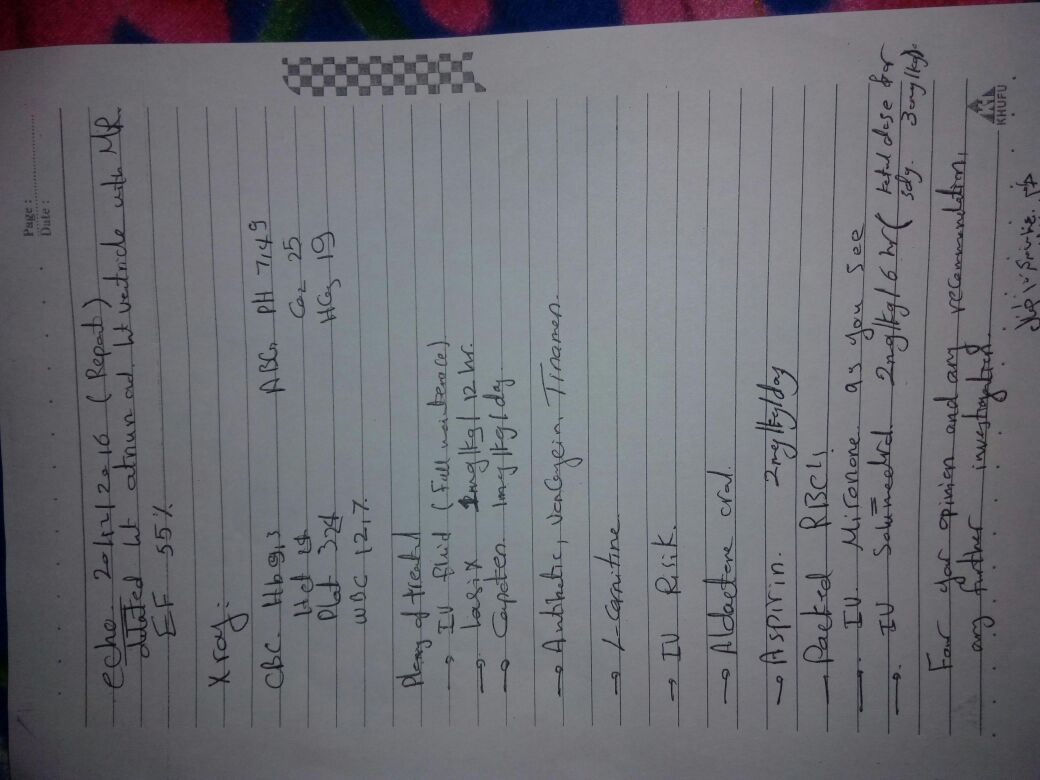 Page :
Date :
echo 20/12/2016 (Repeat)
dilated Lt atrium and Lt ventricle with MR
EF 55%
Xray:
CBC Hb 9,3 ABGs PH 7,49
Hct Co2 25
Plat 324 HCo3 19
WBC 12,7
of treatment
→ IV fluid (Full maintenace)
→ Lasix 1mg/kg/12 hr.
→ Capoten 1mg/kg/day
→ Antibiotic, Vancomycin, Tinam
→ L-carnitine
→ IV
→ Aldactone oral.
→ Aspirin. 2mg/kg/day
→ Packed RBCs,
→ IV Milronone as you see
→ IV Solumedrol 2mg/kg/6 hr ( total dose for
5dy. 30mg/kg).
For your opinion and any recommendation,
any further investigation
KHUFU